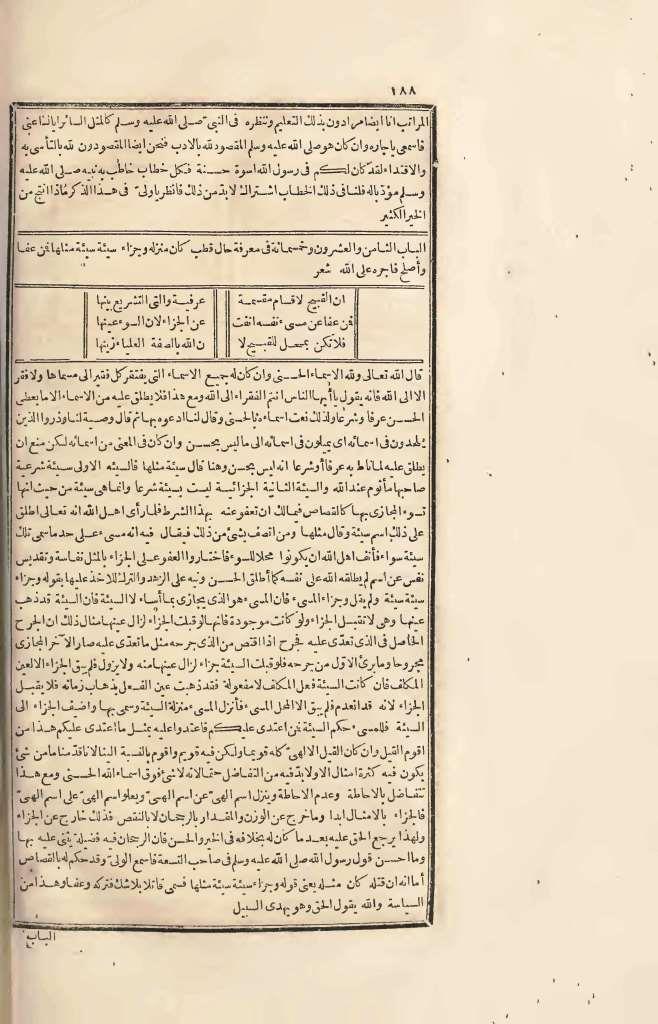 ١٨٨
المراتب انا ايضا مرادون بذلك التعليم وتنظره فى النبىّ صلى الله عليه وسلم كالمثل السائر اياك اعنى
فاسمعى ياجاره وان كان هو صلى الله عليه وسلم المقصود لله بالادب فنحن ايضا المقصودون لله بالتأسى به
والاقتداء لقد كان لكم فى رسول الله اسوة حسنة فكل خطاب خاطب به نبيه صلى الله عليه
وسلم مؤدّباله فلنا فى ذلك الخطاب اشتراك لابدّ من ذلك فانظر ياولىّ فى هذا الذكر ماذا انتج من
الخير الكثير
الباب الثامن والعشرون وخمسمائة فى معرفة حال قطب كان منزله وجزاء سيئة سيئة مثلها فمن عفا
وأصلح فأجره على الله شعر
ان القبيح لاقسام مقسمة
عرفية والتى التشريع بينها
فمن عفا عن مسىء نفسه انفت
عن الجزاء لان السوء عينها
فلا تكن بمحل للقبيح لا
ن الله بالصفة العلياء زينها
قال الله تعالى ولله الاسماء الحسنى وان كان له جميع الاسماء التى يفتقر كل فقير الى مسماها ولا فقر
الا الى الله فانه يقول يا أيها الناس انتم الفقراء الى الله ومع هذا فلا يطلق عليه من الاسماء الا ما يعطى
الحسن عرفا وشرعا ولذلك نعت اسماءه بالحسنى وقال لنا ادعوه بها ثم قال وصية لنا وذروا الذين
يلحدون فى اسمائه اى يميلون فى اسمائه الى ما ليس بحسن وان كان فى المعنى من اسمائه لكن منع ان
يطلق عليه لما ناط به عرفا أو شرعا انه ليس بحسن وهنا قال سيئة مثلها فالسيئة الاولى سيئة شرعية
صاحبها مأثوم عند الله والسيئة الثانية الجزائية ليست بسيئة شرعا وانما هى سيئة من حيث انها
تسوء المجازى بها كالقصاص فيما لك ان تعفو عنه بهذا الشرط فلما رأى اهل الله انه تعالى اطلق
على ذلك اسم سيئة وقال مثلها ومن اتصف بشئ من ذلك فيقال فيه انه مسىء على حد ما سمى تلك
سيئة سواء فأنف اهل الله ان يكونوا محلا للسوء فاختاروا العفو على الجزاء بالمثل نفاسة وتقديس
نفس عن اسم لم يطلقه الله على نفسه كما أطلق الحسن ونبه على الزهد والترك للاخذ عليها بقوله وجزاء
سيئة سيئة ولم يقل وجزاء المسىء فان المسىء هو الذى يجازى بما أساء لا السيئة فان السيئة قد ذهب
عينها وهى لا تقبل الجزاء ولو كانت موجودة فانها لو قبلت الجزاء لزال عينها مثال ذلك ان الجرح
الحاصل فى الذى تعدّى عليه فجرح اذا اقتص من الذى جرحه مثل ما تعدّى عليه صار الآخر المجازى
مجروحا وما برئ الاوّل من جرحه فلو قبلت السيئة جزاء لزال عينها منه ولا يزول فلم يبق الجزاء الالعين
المكلف فان كانت السيئة فعل المكلف لا مفعولة فقد ذهبت عين الفعل بذهاب زمانه فلا يقبل
الجزاء لانه قد انعدم فلم يبق الا المحل المسىء فأنزل المسىء منزلة السيئة وسمى بها واضيف الجزاء الى
السيئة فللمسىء حكم السيئة فمن اعتدى عليكم فاعتدوا عليه بمثل ما اعتدى عليكم هذا من
اقوم القيل وان كان القيل الالهىّ كله قويما ولكن فيه قويم واقوم بالنسبة الينا لانا قدّمنا ما من شئ
يكون فيه كثرة امثال الا ولابدّ فيه من التفاضل حتما لانه لا شئ فوق اسماء الله الحسنى ومع هذا
تتفاضل بالاحاطة وعدم الاحاطة وينزل اسم الهىّ عن اسم الهىّ ويعلو اسم الهىّ على اسم الهىّ
فالجزاء بالامثال ابدا وما خرج عن الوزن والمقدار بالرجحان لا بالنقص فذلك خارج عن الجزاء
ولهذا يرجع الحق عليه بعد ما كان له بخلافه فى الخير والحسن فان الرجحان فيه فضيلة يثنى عليه بها
وما احسن قول رسول الله صلى الله عليه وسلم فى صاحب التسعة فاسمع الولىّ وقد حكم له بالقصاص
أما انه ان قتله كان مثله يعنى قوله وجزاء سيئة سيئة مثلها فسمى قاتلا بلا شك فتركه وعفا وهذا من
السياسة والله يقول الحق وهو يهدى السبيل
الباب